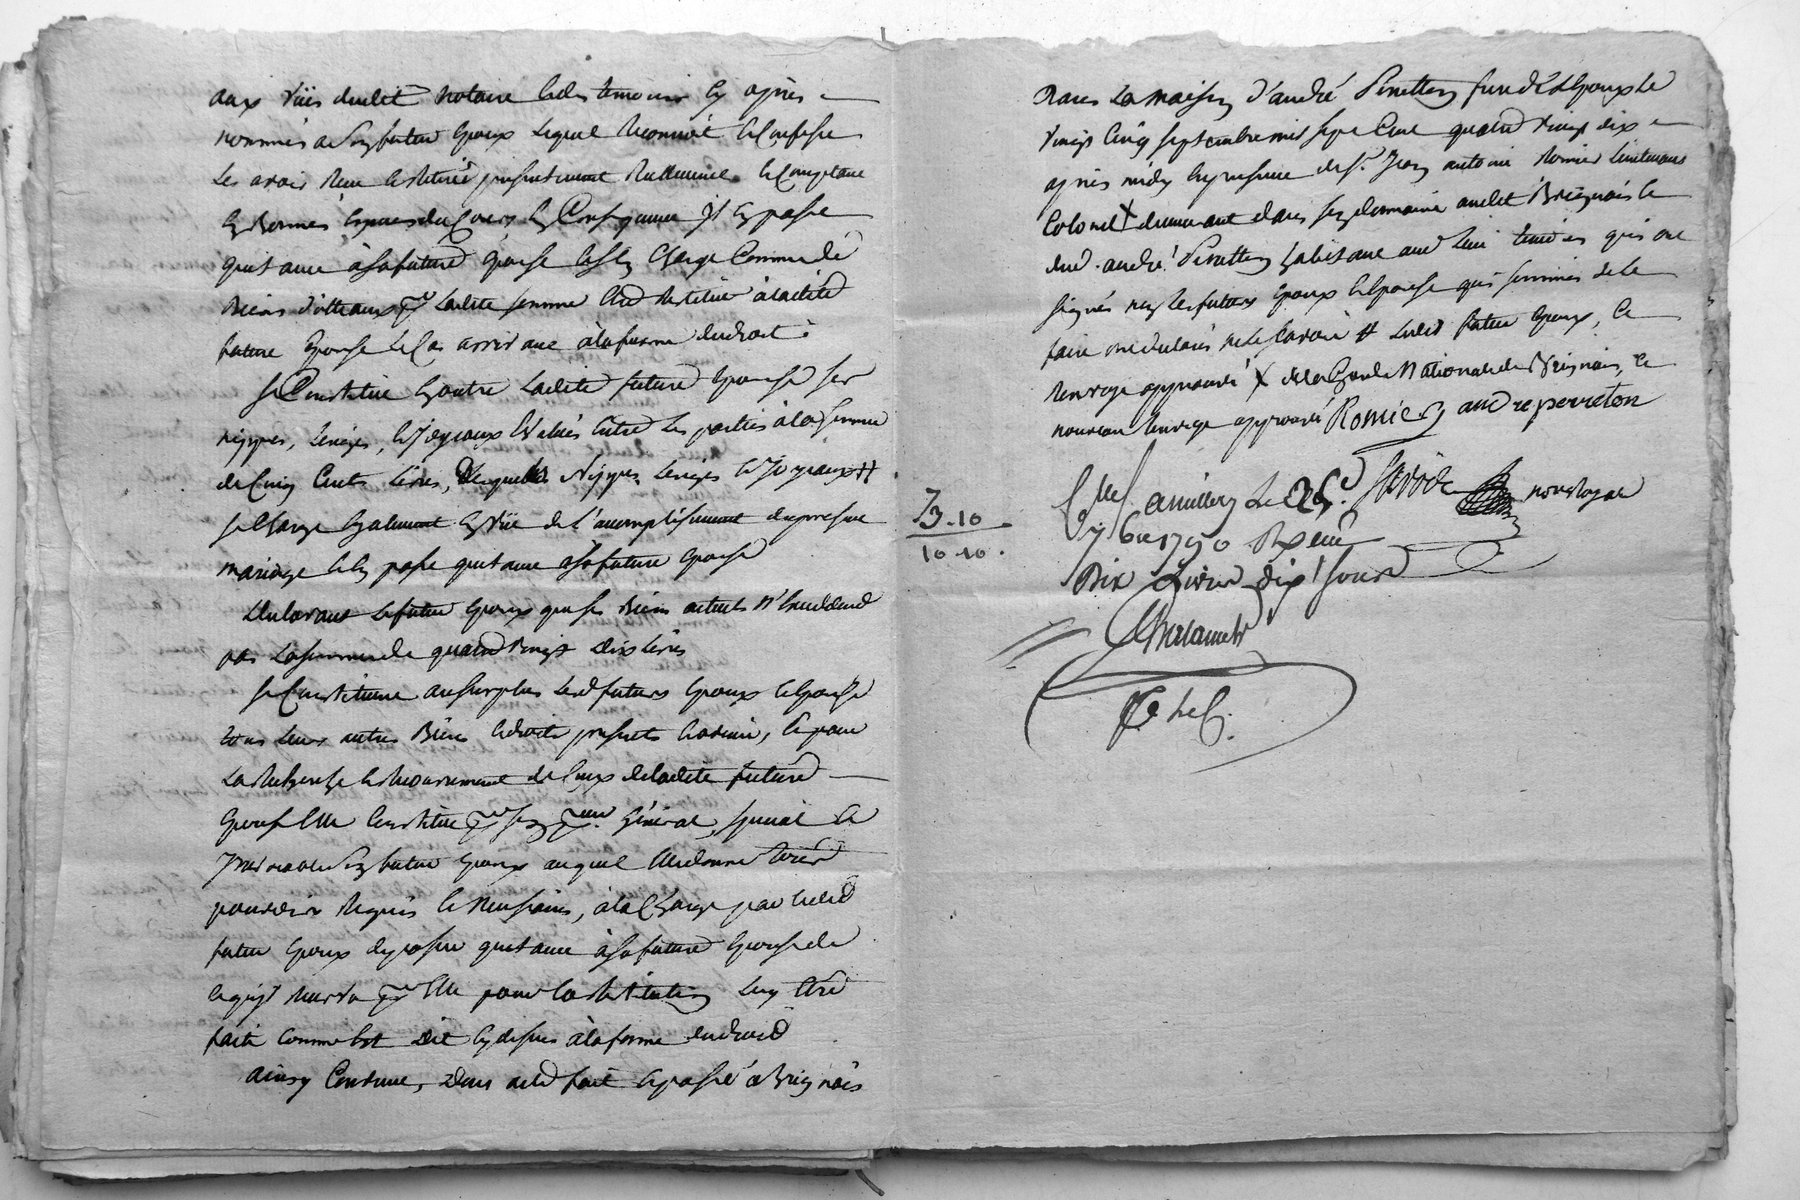 aux vües dudit notaire et des temoins cy après
nommés a son futur epoux lequel reconnoit et confesse
les avoir reçu et retiré presentement reellement et comptant
en bonnes especes de cours en consequence il en passe
quitance à sa future epouse et s'en charge comme de
biens dotteaux pr ladite somme etre restitué à ladite
future epouse le cas arrivant à la forme du droit
se constitue en outre ladite future epouse ses
nippes, linges, et joyeaux evalués entre les parties à la somme
de cinq cents livres, desquels nippes linges et joyeaux #
se charge egalement en vüe de l'accomplissement du present
mariage et en passe quitance à sa future epouse
declarant le futur epoux que ses biens actuels n'excedent
pas la somme de quatre vingt dix livres
se constituent au surplus lesd futurs epoux et epouse
tous leurs autres biens et droits presents et avenir, et pour
la recherche et recouvrement de ceux de ladite future
epouse elle constitue pr son preur general, special et
irrevocable son futur epoux auquel elle donne tous
pouvoirs requis et necessaires, à la charge par ledit
futur epoux de passer quitance à sa future epouse de
ce qu'il recevra pr elle pour la restitution luy etre
faite comme est dit cy dessus à la forme du droit
ainsy convenu, dont acte fait et passé à Brignais
dans la maison d'andré Perretton funds d'epoux le
vingt cinq septembre mil sept cent quatre vingt dix
après midy en presence de sr. jean antoine Romier lieutenant
colonel X demeurant dans son domaine audit Brignais et
dud. andré Perretton habitant aud lieu temoins qui ont
signés non les futurs epoux et epouse qui sommés de le
faire ont declarés ne le savoir # ledit futur epoux, ce
renvoye approuvé X de la garde Nationale de Brignais, ce
nouveau renvoye approuvé Romier andre perreton
Cllé. a millery le 26e.
7bre 1790 Reçu
dix livres dix sous
notre royal
73.10
10.10.